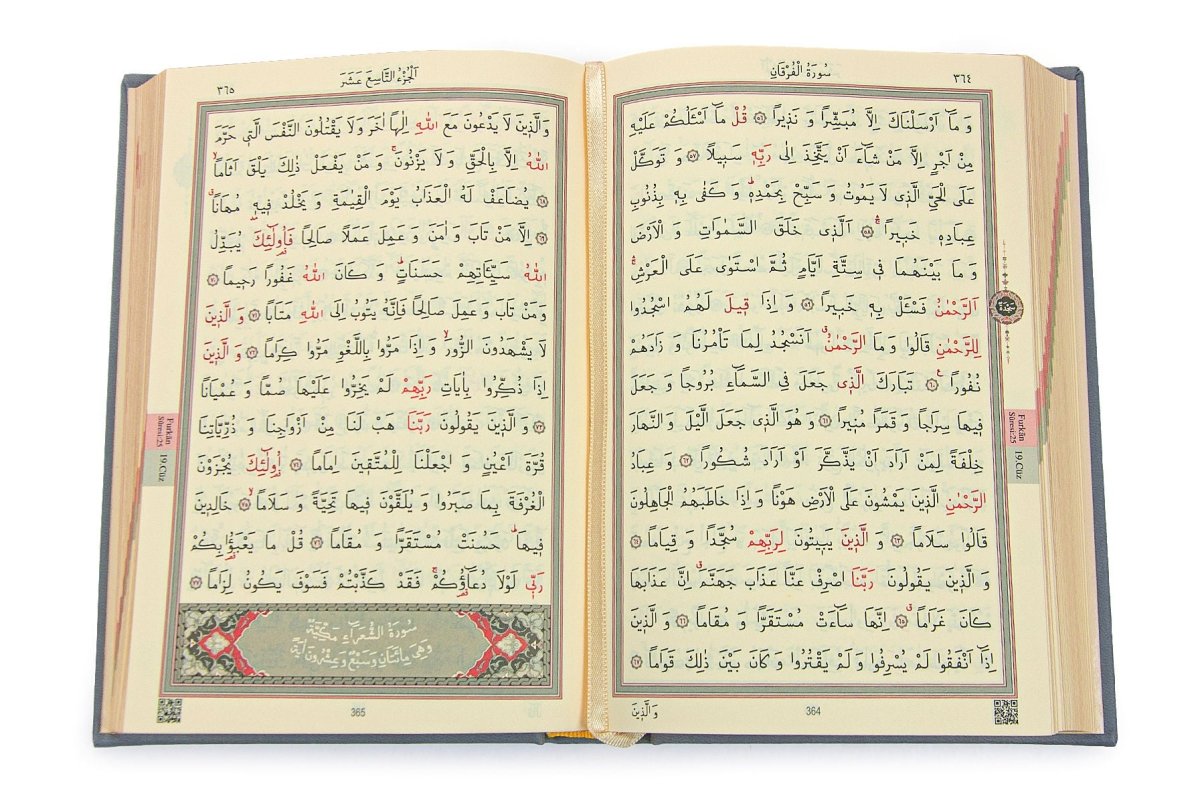 ٣٦٤
سُورَةُ الْفُرْقَانِ
وَ مَٓا اَرْسَلْنَاكَ اِلَّا مُبَشِّرًا وَ نَذٖيرًا ﴿٥٦﴾ قُلْ مَٓا اَسْـَٔلُكُمْ عَلَيْهِ
مِنْ اَجْرٍ اِلَّا مَنْ شَٓاءَ اَنْ يَتَّخِذَ اِلٰى رَبِّهٖ سَبٖيلًا ﴿٥٧﴾ وَ تَوَكَّلْ
عَلَى الْحَيِّ الَّذٖى لَا يَمُوتُ وَ سَبِّحْ بِحَمْدِهٖؕ وَ كَفٰى بِهٖ بِذُنُوبِ
عِبَادِهٖ خَبٖيرًاۚۛ ﴿٥٨﴾ اَلَّذٖى خَلَقَ السَّمٰوَاتِ وَ الْاَرْضَ
وَ مَا بَيْنَهُمَا فٖى سِتَّةِ اَيَّامٍ ثُمَّ اسْتَوٰى عَلَى الْعَرْشِۚۛ
اَلرَّحْمٰنُ فَسْـَٔلْ بِهٖ خَبٖيرًا ﴿٥٩﴾ وَ اِذَا قٖيلَ لَهُمُ اسْجُدُوا
لِلرَّحْمٰنِ قَالُوا وَ مَا الرَّحْمٰنُۗ اَنَسْجُدُ لِمَا تَاْمُرُنَا وَ زَادَهُمْ
نُفُورًا ﴿٦٠﴾ تَبَارَكَ الَّذٖى جَعَلَ فِى السَّمَٓاءِ بُرُوجًا وَ جَعَلَ
فٖيهَا سِرَاجًا وَ قَمَرًا مُنٖيرًا ﴿٦١﴾ وَ هُوَ الَّذٖى جَعَلَ الَّيْلَ وَ النَّهَارَ
خِلْفَةً لِمَنْ اَرَادَ اَنْ يَذَّكَّرَ اَوْ اَرَادَ شُكُورًا ﴿٦٢﴾ وَ عِبَادُ
الرَّحْمٰنِ الَّذٖينَ يَمْشُونَ عَلَى الْاَرْضِ هَوْنًا وَ اِذَا خَاطَبَهُمُ الْجَاهِلُونَ
قَالُوا سَلَامًا ﴿٦٣﴾ وَ الَّذٖينَ يَبٖيتُونَ لِرَبِّهِمْ سُجَّدًا وَ قِيَامًا ﴿٦٤﴾
وَ الَّذٖينَ يَقُولُونَ رَبَّنَا اصْرِفْ عَنَّا عَذَابَ جَهَنَّمَۗ اِنَّ عَذَابَهَا
كَانَ غَرَامًاۗ ﴿٦٥﴾ اِنَّهَا سَٓاءَتْ مُسْتَقَرًّا وَ مُقَامًا ﴿٦٦﴾ وَ الَّذٖينَ
اِذَٓا اَنْفَقُوا لَمْ يُسْرِفُوا وَ لَمْ يَقْتُرُوا وَ كَانَ بَيْنَ ذٰلِكَ قَوَامًا ﴿٦٧﴾
وَ الَّذٖينَ
364
سَجْدَة
Furkân
Sûresi:25
19.Cüz
اَلْجُزْءُ التَّاسِعَ عَشَرَ
٣٦٥
وَ الَّذٖينَ لَا يَدْعُونَ مَعَ اللّٰهِ اِلٰهًا اٰخَرَ وَ لَا يَقْتُلُونَ النَّفْسَ الَّتٖى حَرَّمَ
اللّٰهُ اِلَّا بِالْحَقِّ وَ لَا يَزْنُونَۚ وَ مَنْ يَفْعَلْ ذٰلِكَ يَلْقَ اَثَامًاۙ
﴿٦٨﴾ يُضَاعَفْ لَهُ الْعَذَابُ يَوْمَ الْقِيٰمَةِ وَ يَخْلُدْ فٖيهٖ مُهَانًاۗ
﴿٦٩﴾ اِلَّا مَنْ تَابَ وَ اٰمَنَ وَ عَمِلَ عَمَلًا صَالِحًا فَاُو۬لٰٓئِكَ يُبَدِّلُ
اللّٰهُ سَيِّاٰتِهِمْ حَسَنَاتٍؕ وَ كَانَ اللّٰهُ غَفُورًا رَحٖيمًا ﴿٧٠﴾
وَ مَنْ تَابَ وَ عَمِلَ صَالِحًا فَاِنَّهُ يَتُوبُ اِلَى اللّٰهِ مَتَابًا ﴿٧١﴾ وَ الَّذٖينَ
لَا يَشْهَدُونَ الزُّورَۙ وَ اِذَا مَرُّوا بِاللَّغْوِ مَرُّوا كِرَامًا ﴿٧٢﴾ وَ الَّذٖينَ
اِذَا ذُكِّرُوا بِاٰيَاتِ رَبِّهِمْ لَمْ يَخِرُّوا عَلَيْهَا صُمًّا وَ عُمْيَانًا
﴿٧٣﴾ وَ الَّذٖينَ يَقُولُونَ رَبَّنَا هَبْ لَنَا مِنْ اَزْوَاجِنَا وَ ذُرِّيَّاتِنَا
قُرَّةَ اَعْيُنٍ وَ اجْعَلْنَا لِلْمُتَّقٖينَ اِمَامًا ﴿٧٤﴾ اُو۬لٰٓئِكَ يُجْزَوْنَ
الْغُرْفَةَ بِمَا صَبَرُوا وَ يُلَقَّوْنَ فٖيهَا تَحِيَّةً وَ سَلَامًاۙ ﴿٧٥﴾ خَالِدٖينَ
فٖيهَاؕ حَسُنَتْ مُسْتَقَرًّا وَ مُقَامًا ﴿٧٦﴾ قُلْ مَا يَعْبَؤُ۬ا بِكُمْ
رَبّٖى لَوْلَا دُعَٓاؤُ۬كُمْۚ فَقَدْ كَذَّبْتُمْ فَسَوْفَ يَكُونُ لِزَامًا ﴿٧٧﴾
سُورَةُ الشُّعَرَٓاءِ مَكِّيَّةٌ
وَهِىَ مِائَتَانِ وَسَبْعٌ وَعِشْرُونَ اٰيَةً
365
Furkân
Sûresi:25
19.Cüz